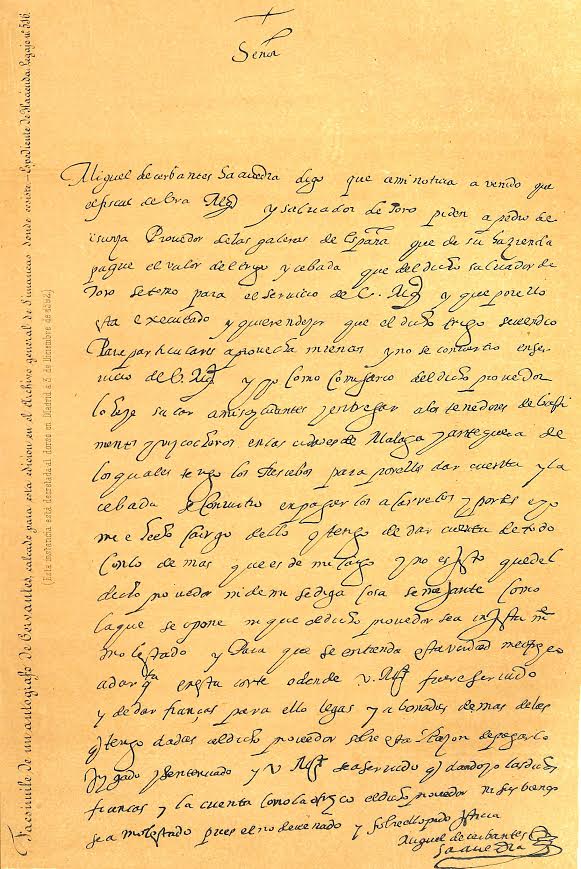 Señor
Miguel de cerbantes Saavedra digo que a mi noticia a venido que
el fiscal de Vra Mgd y salbador de toro piden a pedro de
isunza Proveedor de las galeras de España que de su hazienda
pague el valor del trigo y cebada que del dicho salbador de
toro se tomo para el servicio de V. Mgd y que por ello
esta executado y quieren dezir que el dicho trigo se vendio
Para particulares aprovechamientos y no se convirtio en ser
vicio de V. Mgd y yo como comisario del dicho proveedor
lo hize sacar a mis ayudantes y entregar a los tenedores de basti
mentos y vizcocheros en las ciudades de Malaga y antequera de
los quales tengo los Recibos para por ellos dar cuenta y la
cebada se convirtio en pagar los acarretos y portes e yo
me e hecho cargo dello y tengo de dar cuenta de todo
con lo demas que es de mi cargo y no es justo que del
dicho proveedor ni de mi se diga cosa semejante como
la que se opone ni que el dicho proveedor sea injustamte
molestado y Para que se entienda esta verdad me ofrezco
a dar en esta corte o donde V. Mgd fuere servido
y de dar fianças para ello legas y abonadas demas de las
q tengo dadas al dicho proveedor sobre esta Razon de pagar lo
Juzgado y sentenciado y V. Mgd sea servido q dando yo las dichas
fianças y la cuenta como la ofrezco el dicho proveedor ni sus bienes
sea molestado pues el no deve nada y sobre ello pido justicia
Miguel de cerbantes
Saavedra
Facsimile de un autógrafo de Cervantes, calcado para esta edicion en el Archivo general de Simancas donde consta.—Expediente de Hacienda. Legajo nº 516.
(Esta instancia está decretada al dorso en Madrid a 3 de Diciembre de 1592)